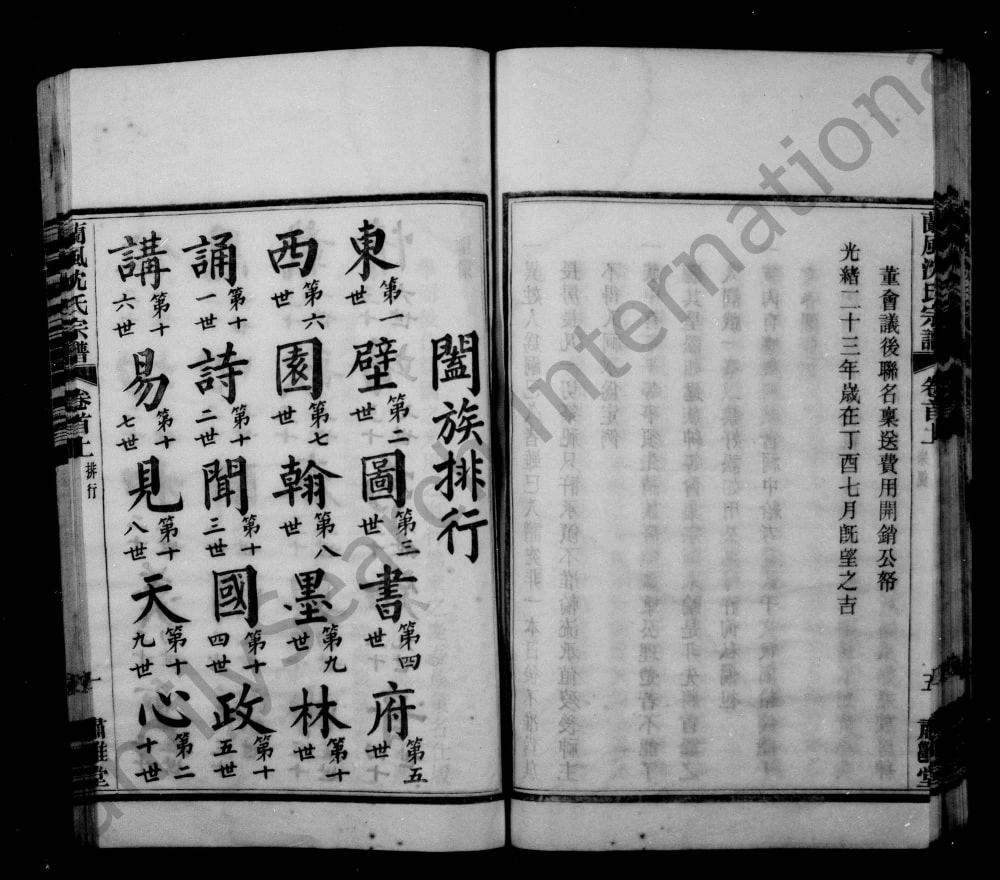 董會議後聯名稟送費用開銷公帑
光緒二十三年歲在丁酉七月既望之吉
蘭風沈氏宗譜
卷首上
五
肅雝堂
闔族排行
東第一世壁第二世圖第三世書第四世府第五世
西第六世園第七世翰第八世墨第九世林第十世
誦第十一世詩第十二世聞第十三世國第十四世政第十五世
講第十六世易第十七世見第十八世天第十九世心第二十世
蘭風沈氏宗譜
卷首上
排行
一
肅雝堂
Family Search International